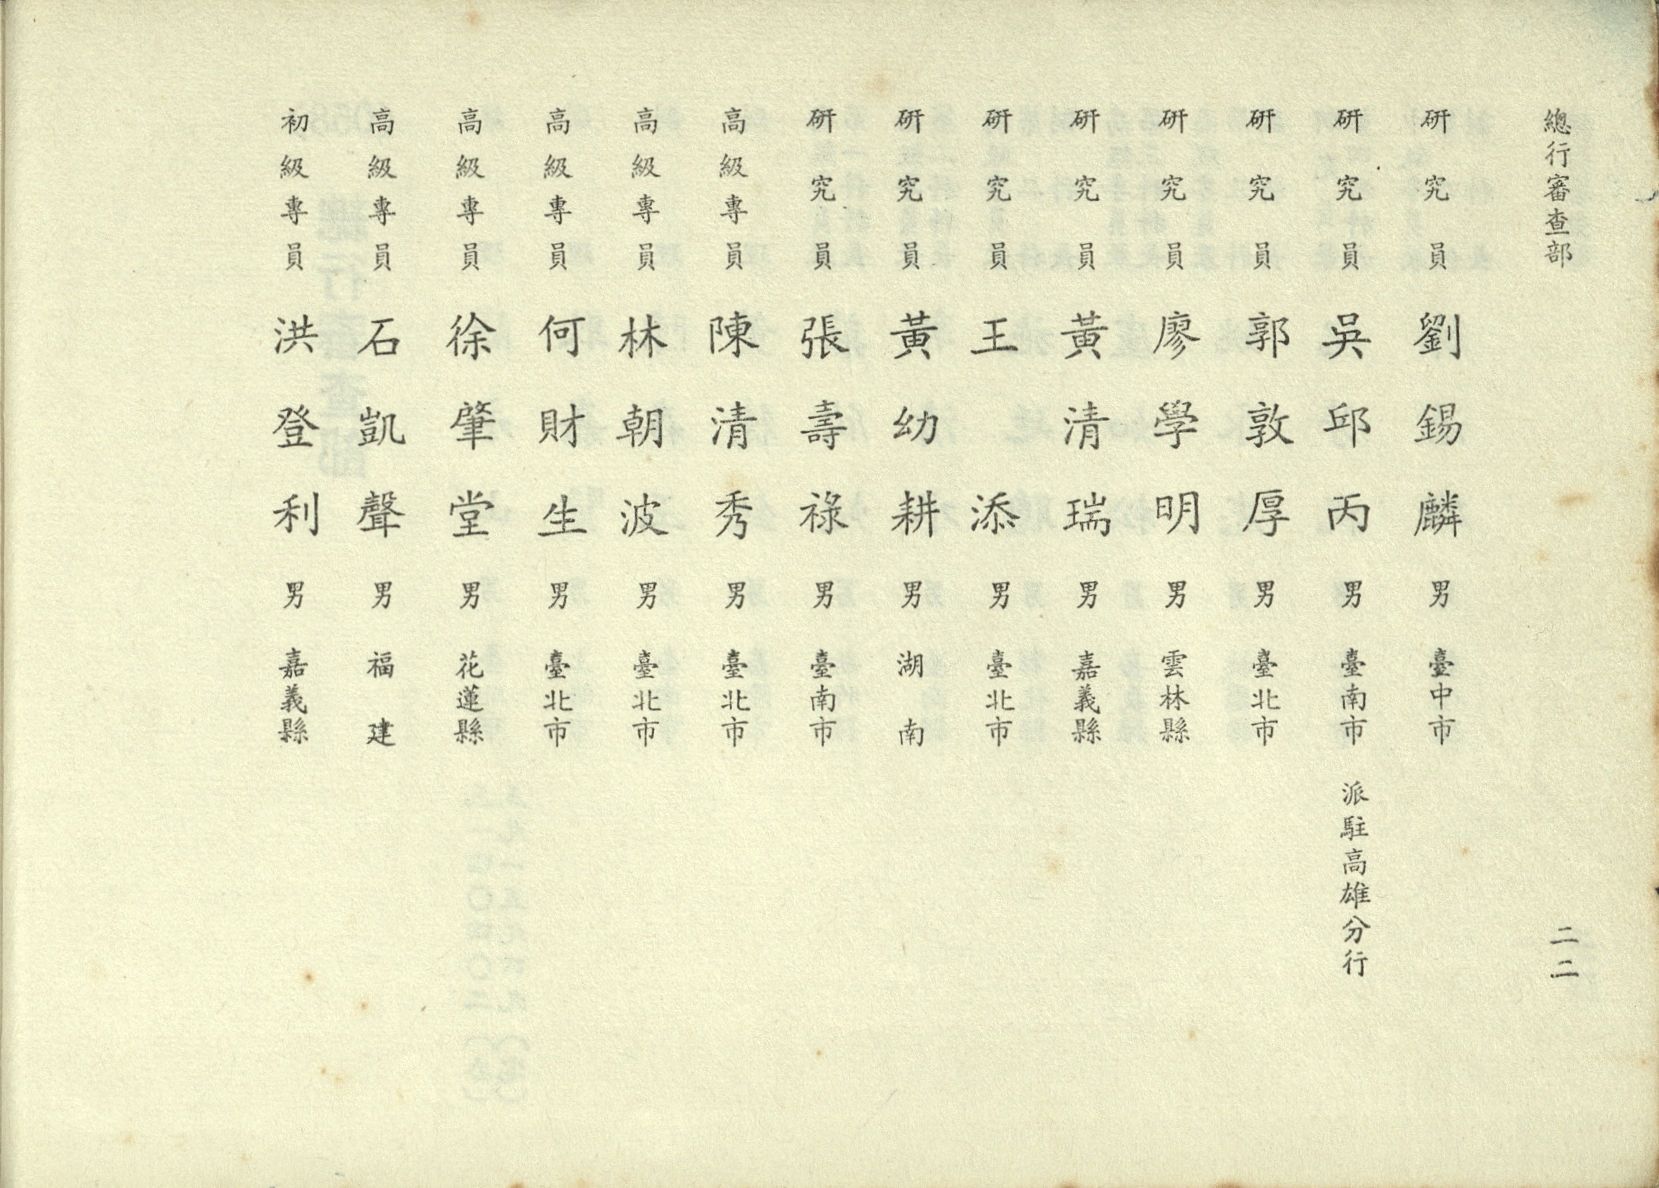 總行審查部 二二
研究員 劉錫麟 男 臺中市
研究員 吳邱丙 男 臺南市 派駐高雄分行
研究員 郭敦厚 男 臺北市
研究員 廖學明 男 雲林縣
研究員 黃清瑞 男 嘉義縣
研究員 王添 男 臺北市
研究員 黃幼耕 男 湖南
研究員 張壽祿 男 臺南市
高級專員 陳清秀 男 臺北市
高級專員 林朝波 男 臺北市
高級專員 何財生 男 臺北市
高級專員 徐肇堂 男 花蓮縣
高級專員 石凱聲 男 福建
初級專員 洪登利 男 嘉義縣